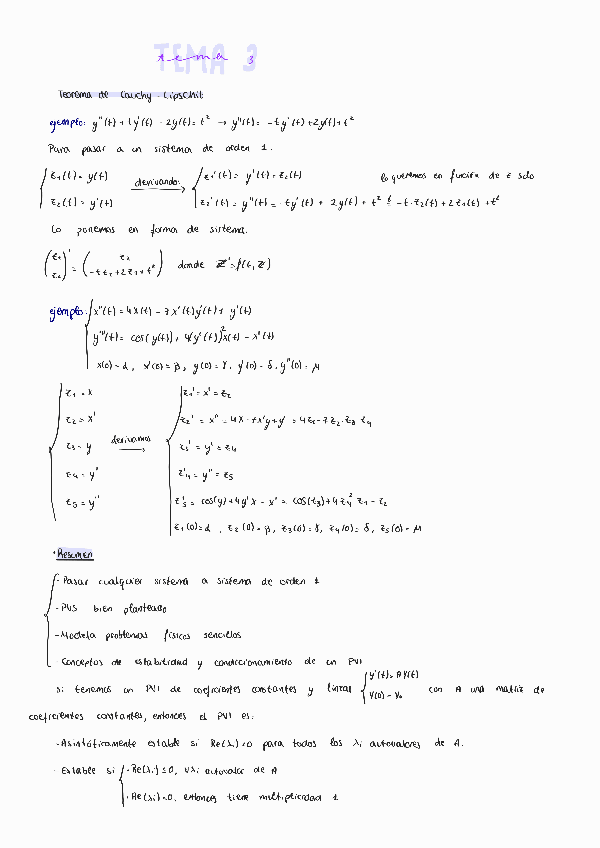 TEMA 3
tema 3
Teorema de Cauchy-Lipschit
ejemplo: y''(t) + ty'(t) - 2y(t) = t² → y''(t) = -ty'(t) + 2y(t) + t²
Para pasar a un sistema de orden 1.
z₁(t) = y(t) derivando: z₁'(t) = y'(t) = z₂(t) lo queremos en función de t solo
z₂(t) = y'(t) z₂'(t) = y''(t) = -ty'(t) + 2y(t) + t² = -t·z₂(t) + 2z₁(t) + t²
Lo ponemos en forma de sistema.
(z₁ z₂)' = (z₂ -tz₂+2z₁+t²) donde Z' = f(t, Z)
ejemplo: x''(t) = 4x(t) - 7x'(t)y'(t) + y'(t)
y'''(t) = cos(y(t)) + 4(y'(t))²x(t) - x'(t)
x(0) = α, x'(0) = β, y(0) = γ, y'(0) = δ, y''(0) = μ
z₁ = x z₁' = x' = z₂
z₂ = x' z₂' = x'' = 4x - 7x'y + y' = 4z₁ - 7z₂·z₃ z₄
z₃ = y derivamos z₃' = y' = z₄
z₄ = y' z'₄ = y'' = z₅
z₅ = y'' z'₅ = cos(y) + 4y'x - x' = cos(z₃) + 4z₄² z₁ - z₂
z₁(0) = α, z₂(0) = β, z₃(0) = γ, z₄(0) = δ, z₅(0) = μ
·Resumen
- Pasar cualquier sistema a sistema de orden 1
- PVS bien planteado
- Modela problemas físicos sencillos
- Conceptos de estabilidad y condicionamiento de un PVI
Si tenemos un PVI de coeficientes constantes y lineal { y'(t) = A y(t) y(0) = y₀ con A una matriz de
coeficientes constantes, entonces el PVI es:
·Asintóticamente estable si Re(λi)<0 para todos los λi autovalores de A.
· Estable si { · Re(λi) ≤ 0, ∀λi autovalor de A
· Re(λi)=0, entonces tiene multiplicidad 1